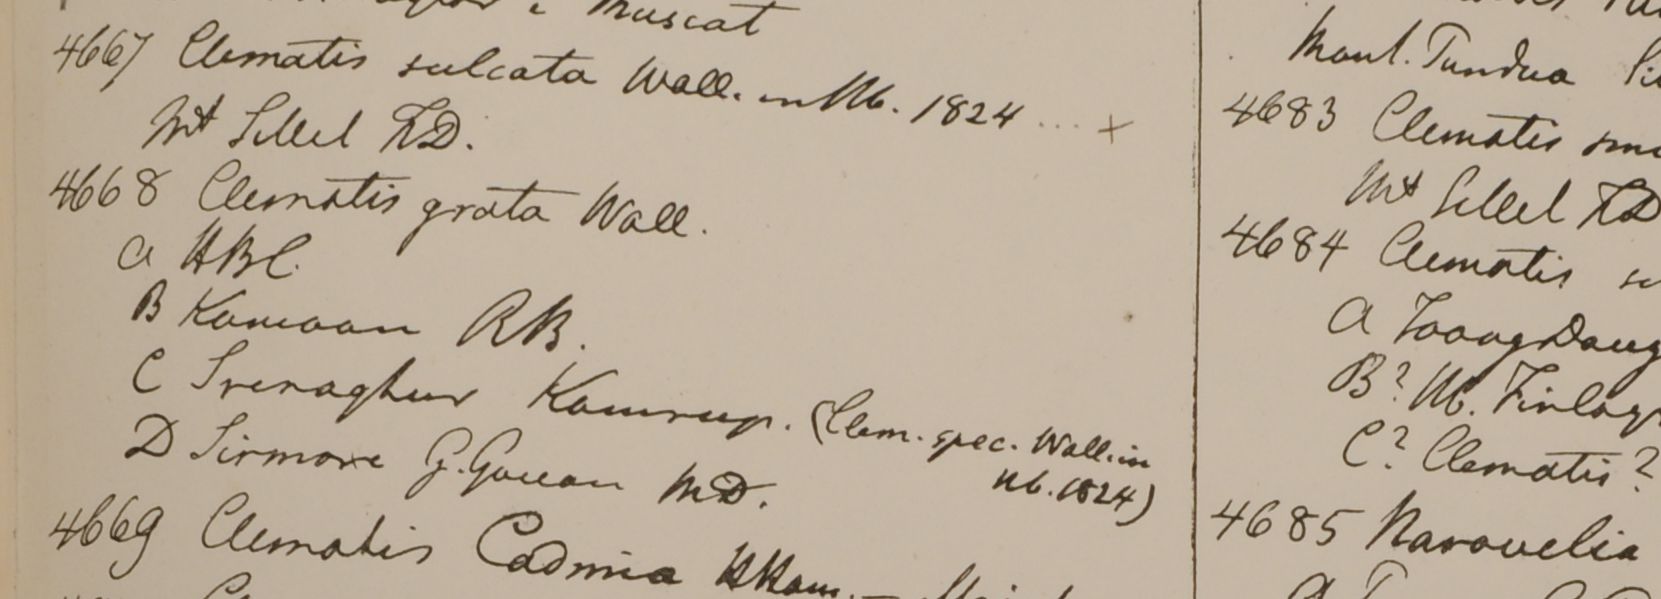 Muscat
4667 Clematis sulcata Wall. in Hb. 1824 ... +
Mt Sillet F.D.
4668 Clematis grata Wall.
a HBC.
B Kamaon RB.
C Srenaghur Kamrup. (Clem. spec. Wall. in
Hb. 1824)
D Sirmore G. Govan MD.
4669 Clematis Cadmia HHam. —
Mont. Tundua
4683 Clematis
Mt Sillet F.D
4684 Clematis
a Toong Daung
B? Hb. Finlays
C? Clematis?
4685 Naravelia